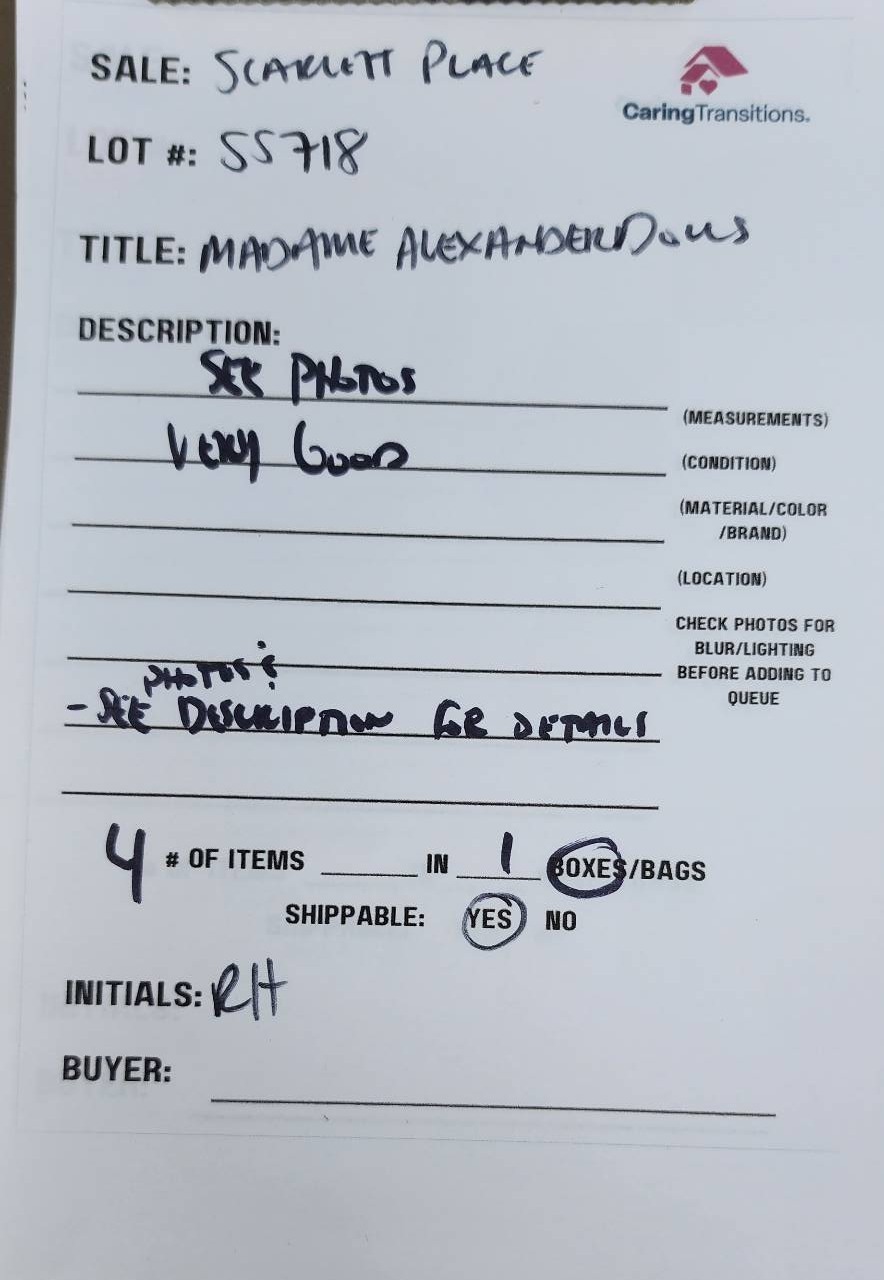 SALE: SCARLETT PLACE
CaringTransitions.
LOT #: SS718
TITLE: MADAME ALEXANDER DOLLS
DESCRIPTION:
SEE PHOTOS
(MEASUREMENTS)
VERY GOOD
(CONDITION)
(MATERIAL/COLOR
/BRAND)
(LOCATION)
CHECK PHOTOS FOR
BLUR/LIGHTING
BEFORE ADDING TO
QUEUE
PHOTOS &
- SEE DESCRIPTION FOR DETAILS
4 # OF ITEMS IN 1 BOXES/BAGS
SHIPPABLE: YES NO
INITIALS: RH
BUYER: